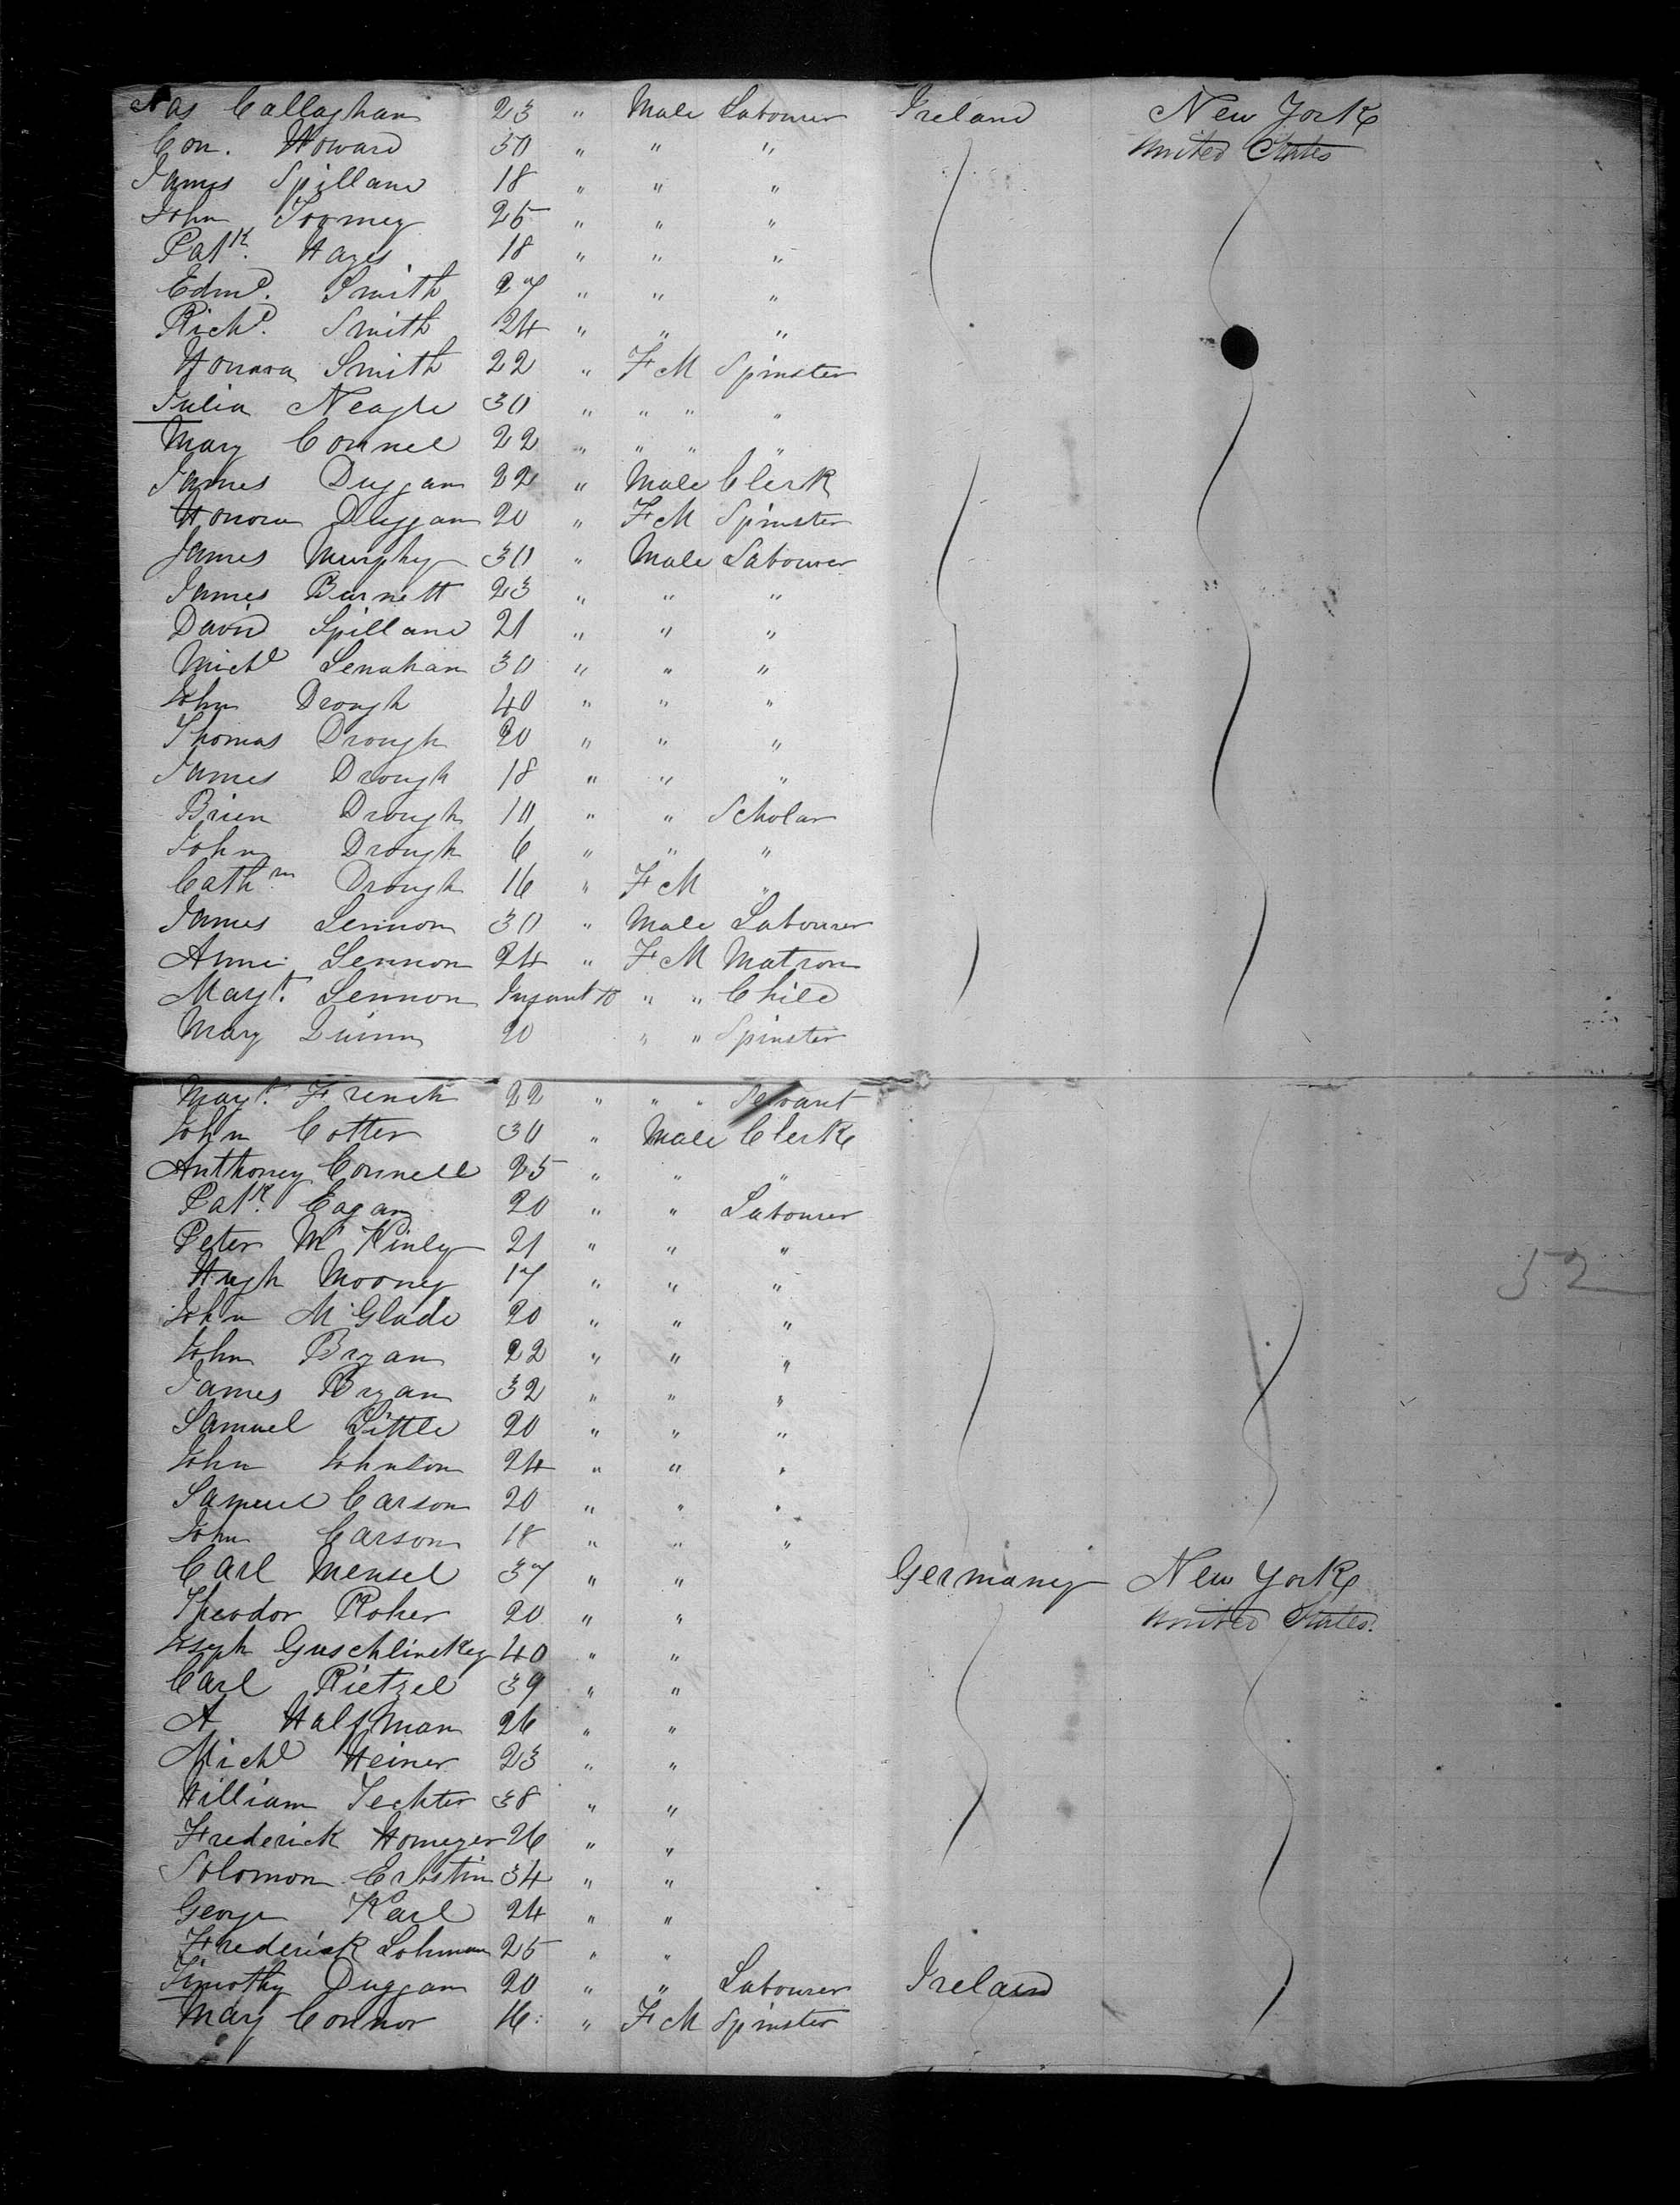 Jas Callaghan 23 " Male Labourer Ireland New York
Con. Howard 30 " " " United States
James Spillane 18 " " "
John Toomey 25 " " "
Patk. Hayes 18 " " "
Edmd. Smith 27 " " "
Richd. Smith 24 " " "
Honora Smith 22 " F M Spinster
Julia Neagle 30 " " " "
Mary Connel 22 " " " "
James Duggan 22 " Male Clerk
Honora Duggan 20 " F M Spinster
James Murphy 30 " Male Labourer
James Burnett 23 " " "
David Spillane 21 " " "
Michl Lenahan 30 " " "
John Drough 40 " " "
Thomas Drough 20 " " "
James Drough 18 " " "
Brien Drough 10 " " Scholar
John Drough 6 " " "
Cathrn Drough 16 " F M "
James Lennon 30 " Male Labourer
Anne Lennon 24 " F M Matron
Magt. Lennon Infant 10 " " Child
Mary Quinn 20 " " Spinster
Magt. French 22 " " " Servant
John Cotter 30 " Male Clerk
Anthoney Connell 25 " " "
Patk. Eagan 20 " " Labourer
Peter Mc Kinley 21 " " "
Hugh Mooney 17 " " "
John McGlade 20 " " "
John Bryan 22 " " "
James Bryan 32 " " "
Samuel Little 20 " " "
John Johnson 24 " " "
Samuel Carson 20 " " "
John Carson 18 " " "
Carl Mensel 37 " " Germany New York
Theodor Roher 20 " " United States.
Joseph Guschlinskey 40 " "
Carl Rietzel 39 " "
A Halfman 26 " "
Michl Heiner 23 " "
William Techter 38 " "
Frederick Homeyer 26 " "
Solomon Erbstin 34 " "
George Karl 24 " "
Frederick Lohman 25 " "
Timothy Duggan 20 " " Labourer Ireland
Mary Connor 16 " F M Spinster
52